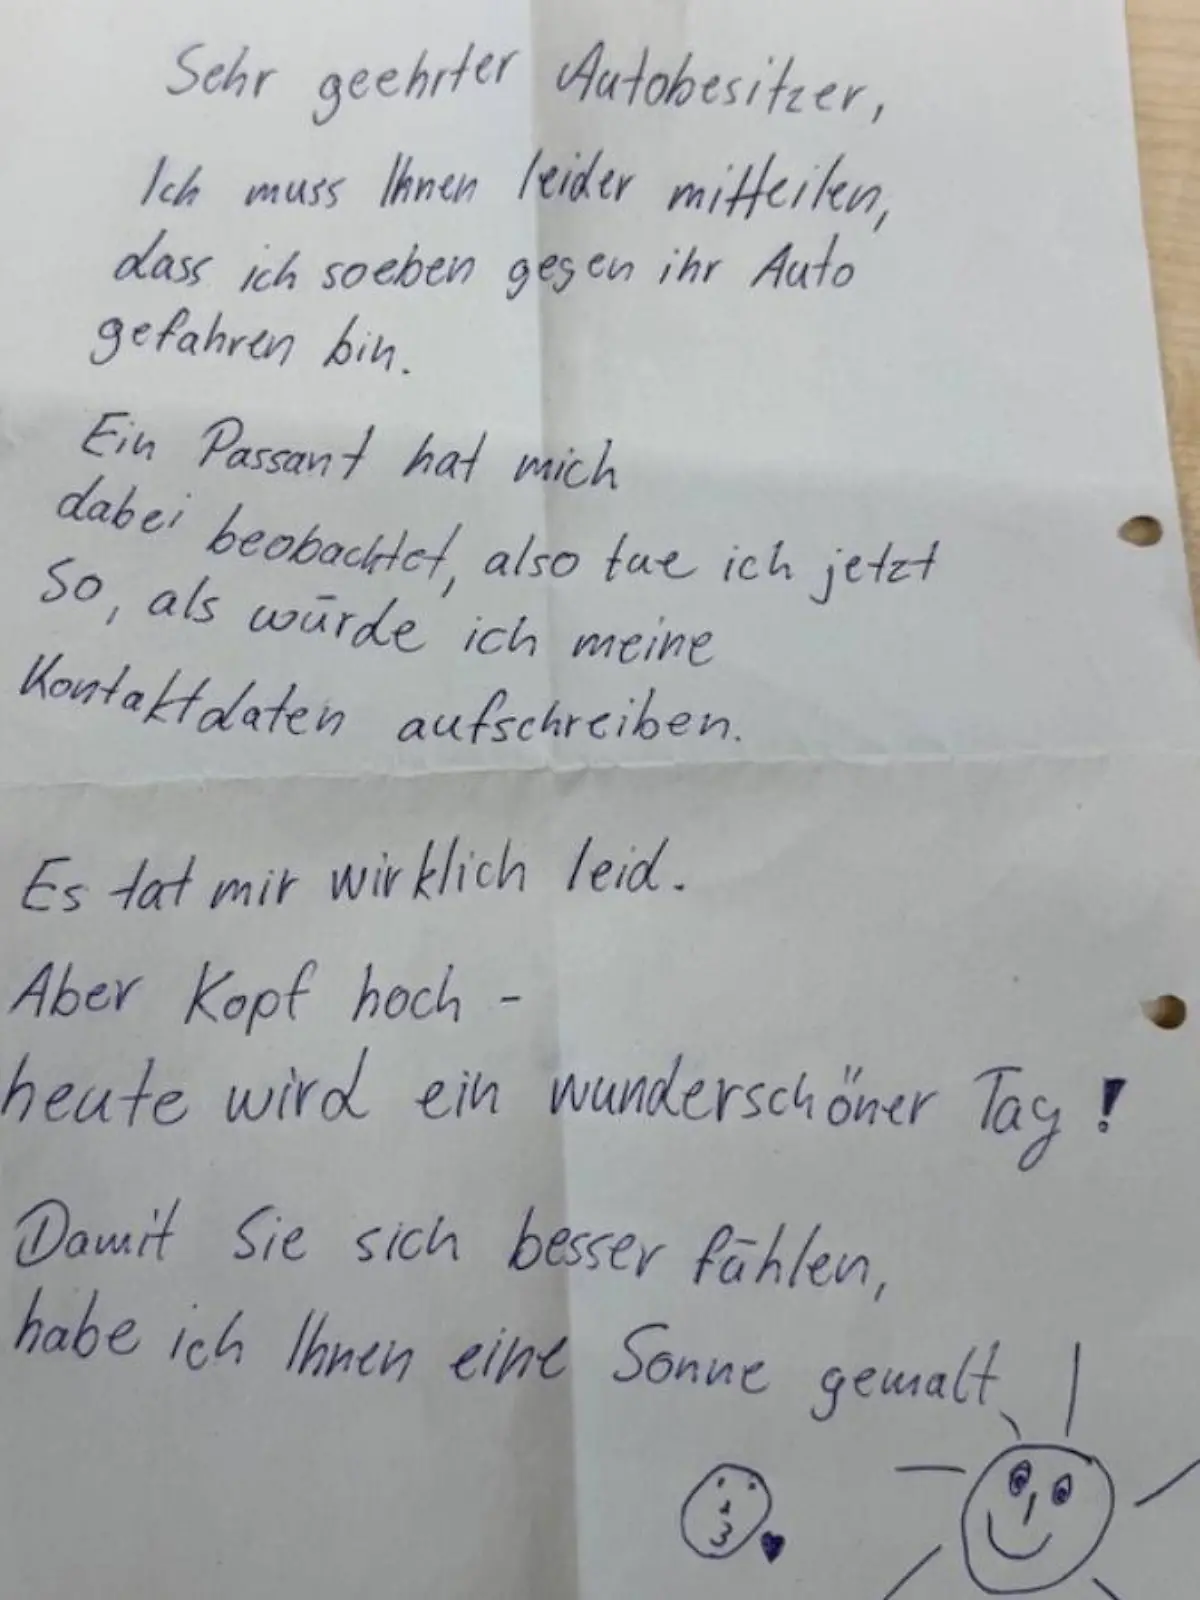 Sehr geehrter Autobesitzer,
Ich muss Ihnen leider mitteilen,
dass ich soeben gegen ihr Auto
gefahren bin.
Ein Passant hat mich
dabei beobachtet, also tue ich jetzt
so, als würde ich meine
Kontaktdaten aufschreiben.
Es tat mir wirklich leid.
Aber Kopf hoch -
heute wird ein wunderschöner Tag!
Damit Sie sich besser fühlen,
habe ich Ihnen eine Sonne gemalt